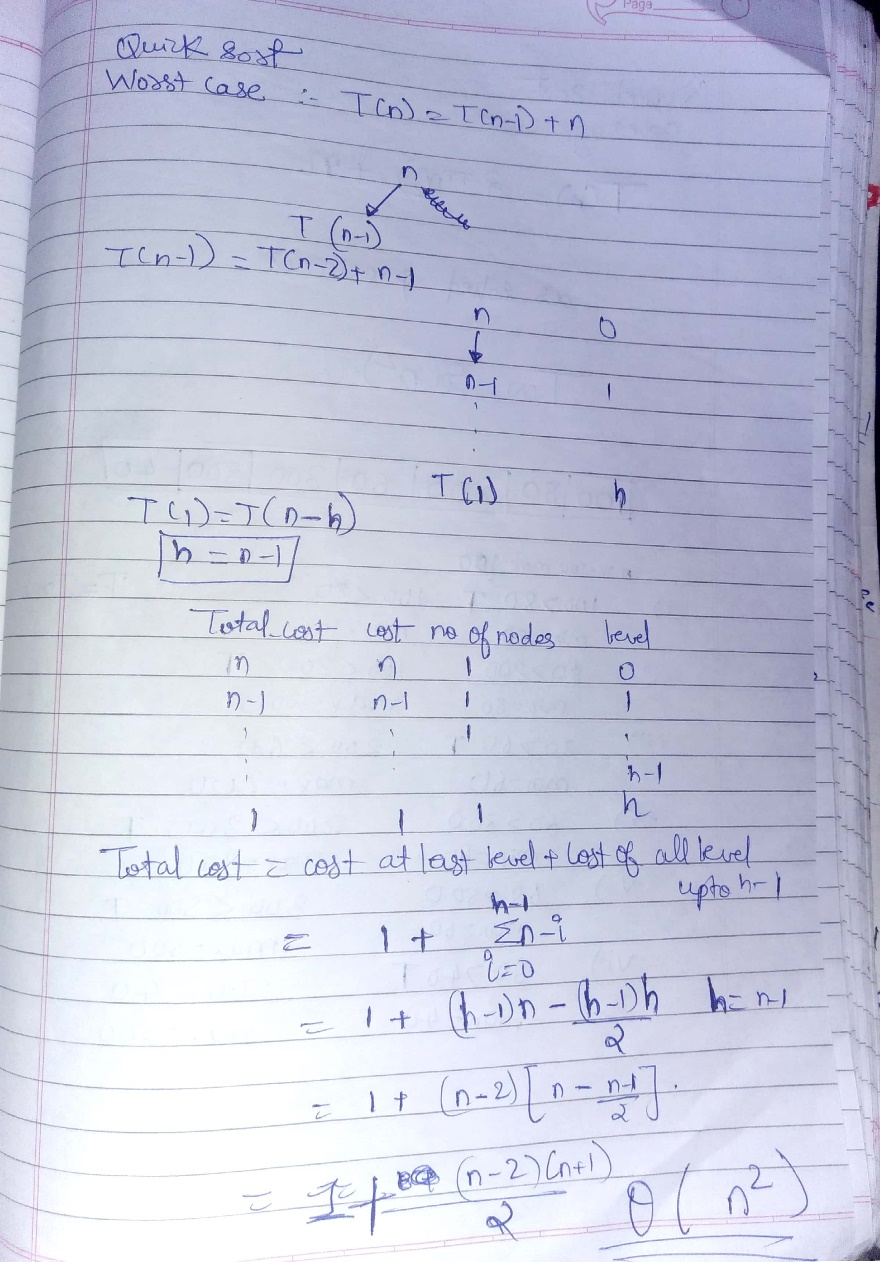 Page
Quick Sort
Worst case :- T(n) = T(n-1) + n
n
T (n-1)
T(n-1) = T(n-2) + n-1
n 0
n-1 1
T(1) h
T(1) = T(n-h)
h = n-1
Total cost cost no of nodes level
n n 1 0
n-1 n-1 1 1
1
h-1
1 1 1 h
Total cost = cost at last level + cost of all level
upto h-1
= 1 + h-1 Σ i=0 n-i
= 1 + (h-1)n - (h-1)h/2 h = n-1
= 1 + (n-2) [n - n-1/2].
= 1 + (n-2)(n+1)/2 θ(n²)